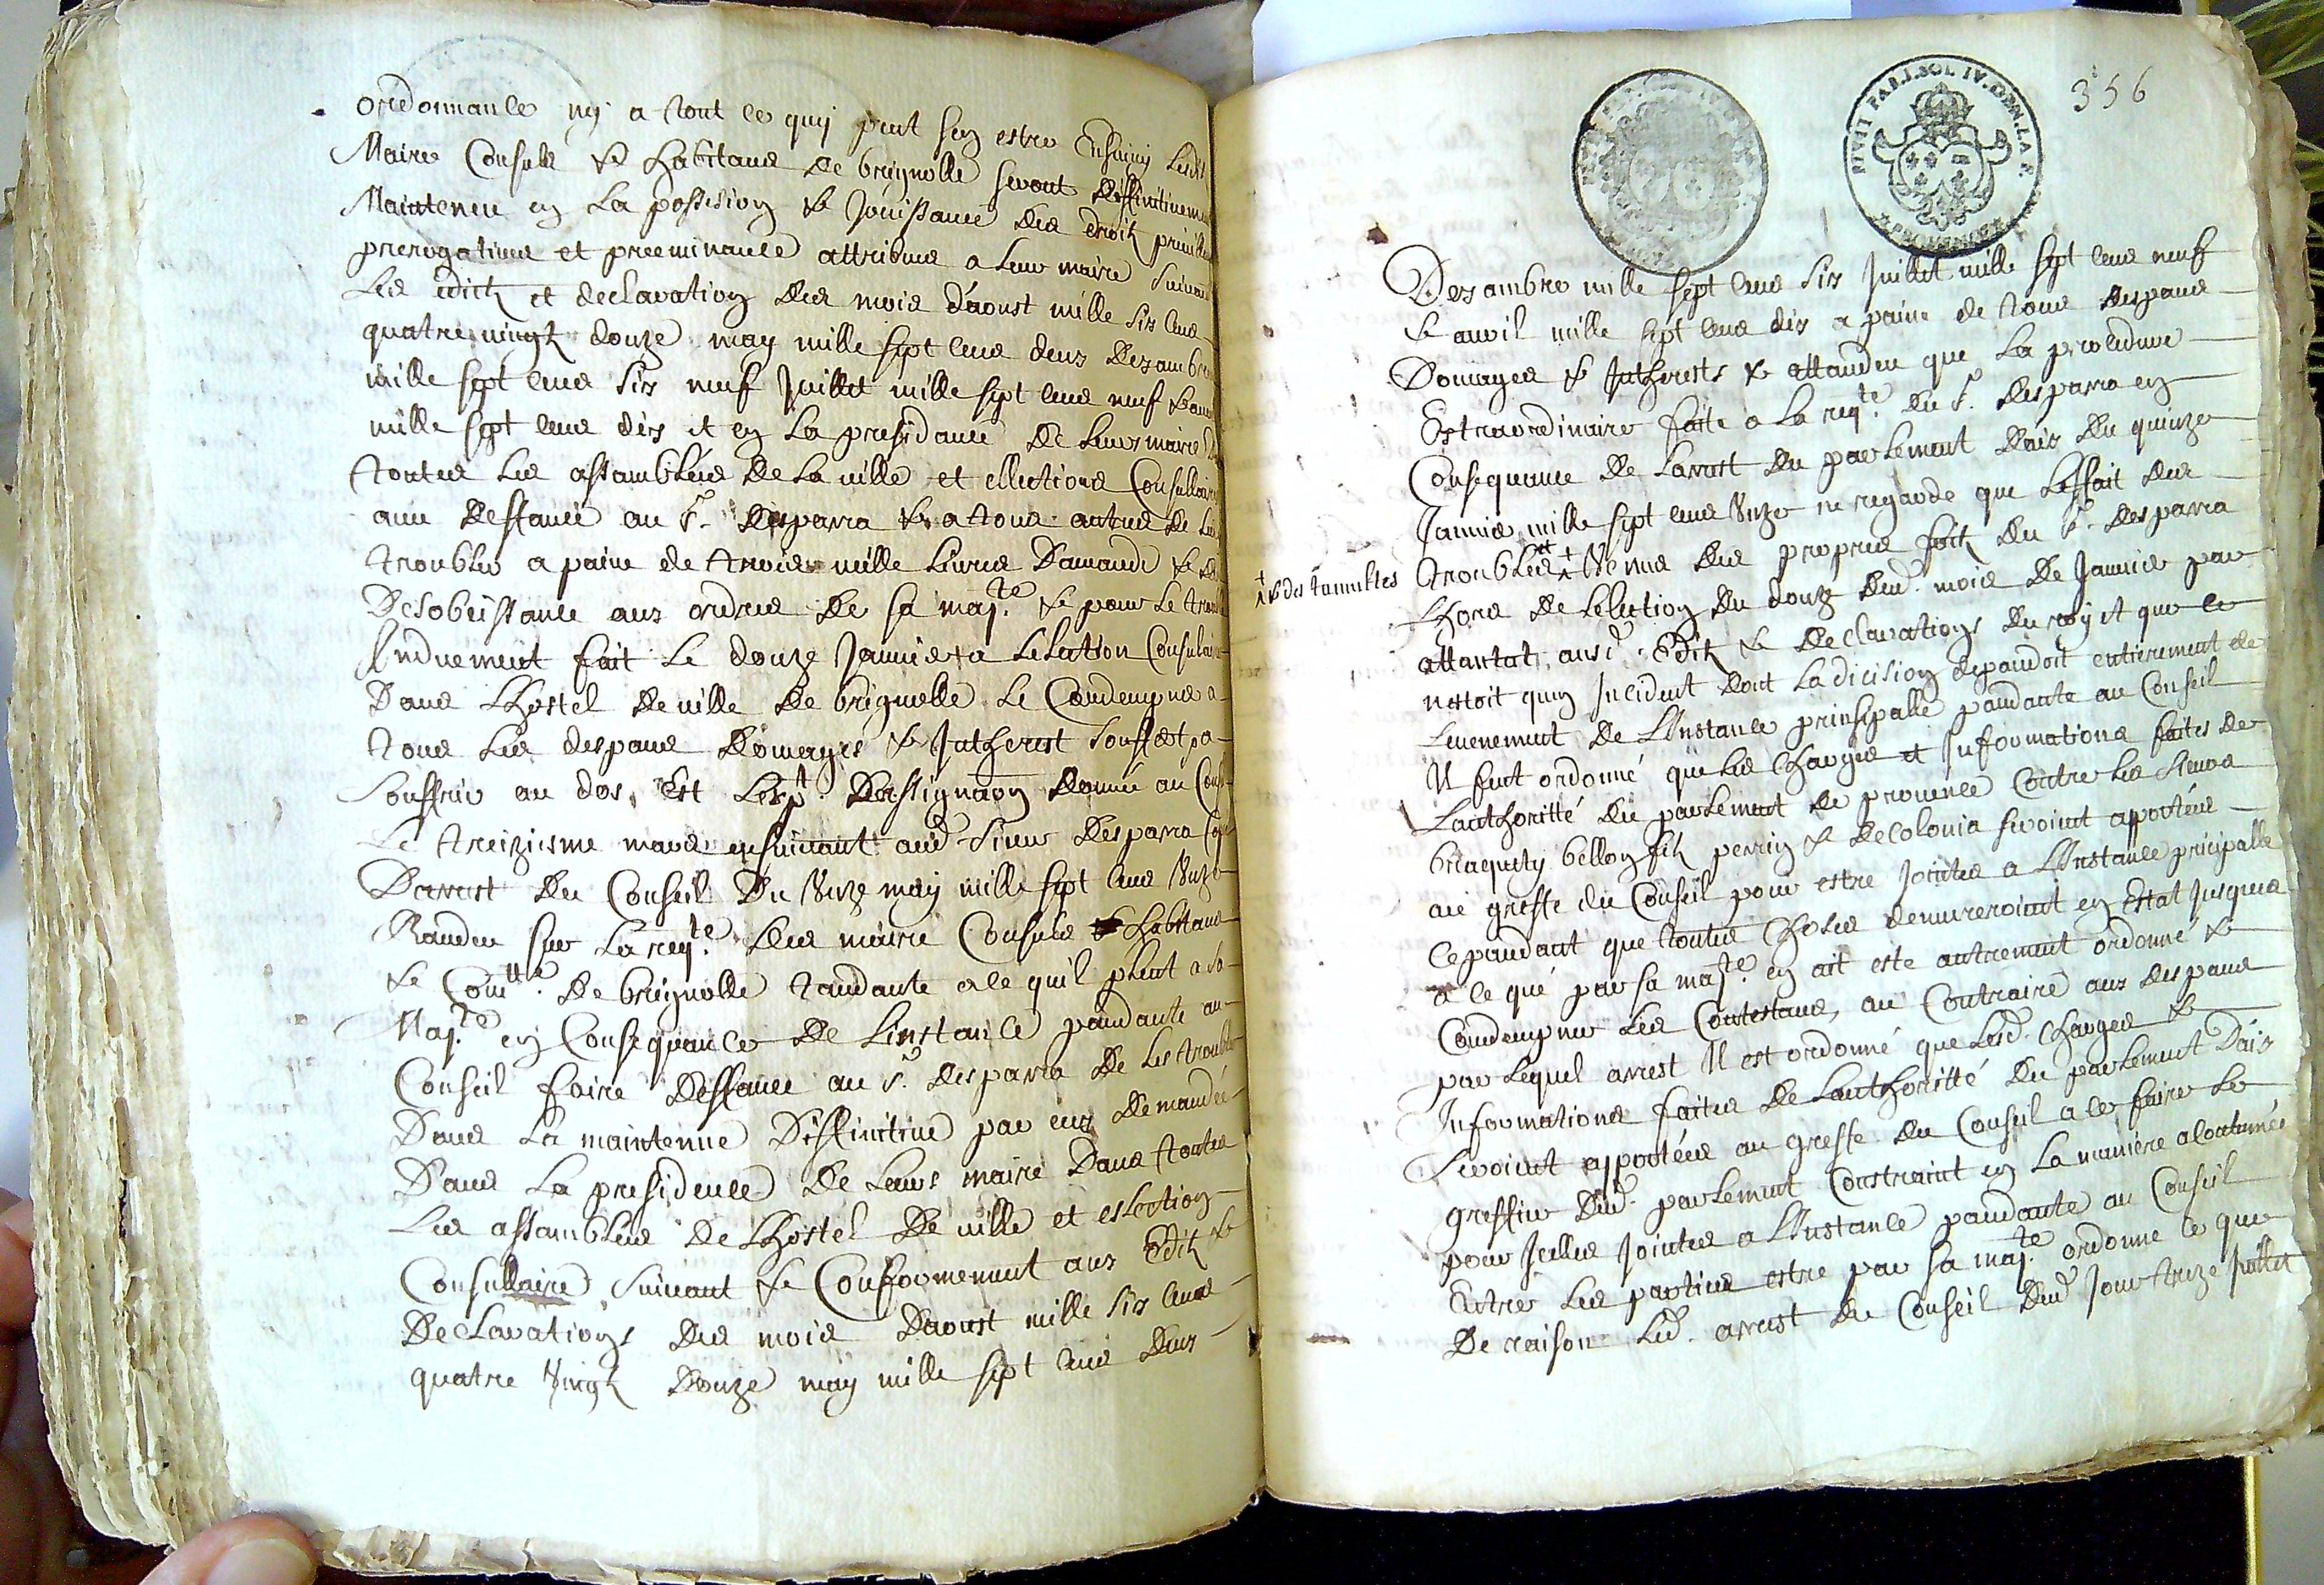 ordonnance ny a tout ce quy peut sen estre Ensuivy Lesdts
Maire Consuls & habitans de brignolle seront deffinitivem
Mainteneu en La possesion & Jouissance des droitz privill
prerogatives et preeminance attribues a Leur maire suivan
Les editz et declaration des mois d'aoust mille six cens
quatre vingtz douze may mille sept cens deux Desambre
mille sept cens six neuf Juillet mille sept cens neuf & avr
mille sept cens dix et en La presidance de Leurs maire
toutes Les assamblées de La ville et ellections Consullaire
avec deffance au Sr. Desparra & a tous autres de Les
troubler a paine de trois mille Livres Damande & de
Desobeissance aux ordres de sa majte. & pour Le troub
Induement fait Le douze Janvier a Lelection Consulaire
Dans Lhostel de ville de brignolle Le Condempner a
tous Les despans Domages & Intherest souffert pa
souffrir au dos, Est Lexpt. Dassignaon Donnée au Cons
Le treiziesme mars ensuivant aud Sieur Desparra Cop
Darrest du Conseil Du Unze may mille sept cens Unze
Randeu sur La reqte. des maire Consuls & habitans
& Comtte. de brignolle tandante a ce qu'il pleut a sa
Majte. en Consequance de Linstance pandante au
Conseil faire deffance au Sr. Desparra de Les troubler
Dans La maintenue Diffinitive par eux demandée
Dans La presidence de Leurs maire Dans toutes
Les assamblées de Lhostel de ville et eslection
Consullaire suivant & Conformement aux Editz &
Declarations des mois Daoust mille six cens
quatre Vingtz Douze may mille sept cens Deux
356
PETIT PAP. 1. SOL IV. DEN. LA F.
PROVENCE
Desambre mille sept cens six Juillet mille sept cens neuf
& avril mille sept cens dix a paine de tous despans
Domages & Intherests & attandeu que La procedure
Extraordinaire faite a La reqte. du Sr. Desparra en
Consequance de Larrest du parlement daix du quinze
Janvier mille sept cens Unze ne regarde que Leffait des
troubles et Venus des propres faitz du Sr. Desparra
& des tumultes
Lhors de Lelection du douze dud. mois de Janvier par
attantat, ausd. Editz & declarations du roy et que ce
nestoit quun Incident dont La dicision depandoit entierement de
Levenement de LInstance prinsipalle pandante au Conseil
Il feut ordonné que Les charges et Informations faites de
Lauthoritté du parlement de provence Contre Les Sieurs
braquety bellon filz perrin & de Colonia seroint apportées
au greffe du Conseil pour estre Jointes a LInstance pricipalle
Cepandant que toutes choses demureroint en Estat Jusques
a ce que par sa majte. en ait este autrement ordonné &
Condempner Les Contestans, au Contraire aux despans
par Lequel arrest Il est ordonné que Lesd. charges &
Informations faites de Lauthoritté du parlement Daix
seroint apportées au greffe du Conseil a ce faire Le
greffier dud. parlement Constraint en La maniere acoutumée
pour Jcelles Jointes a LInstance pandante au Conseil
Entre Les parties estre par sa majte. ordonne ce que
De raison Led. arrest du Conseil dud Jour treze Juillet